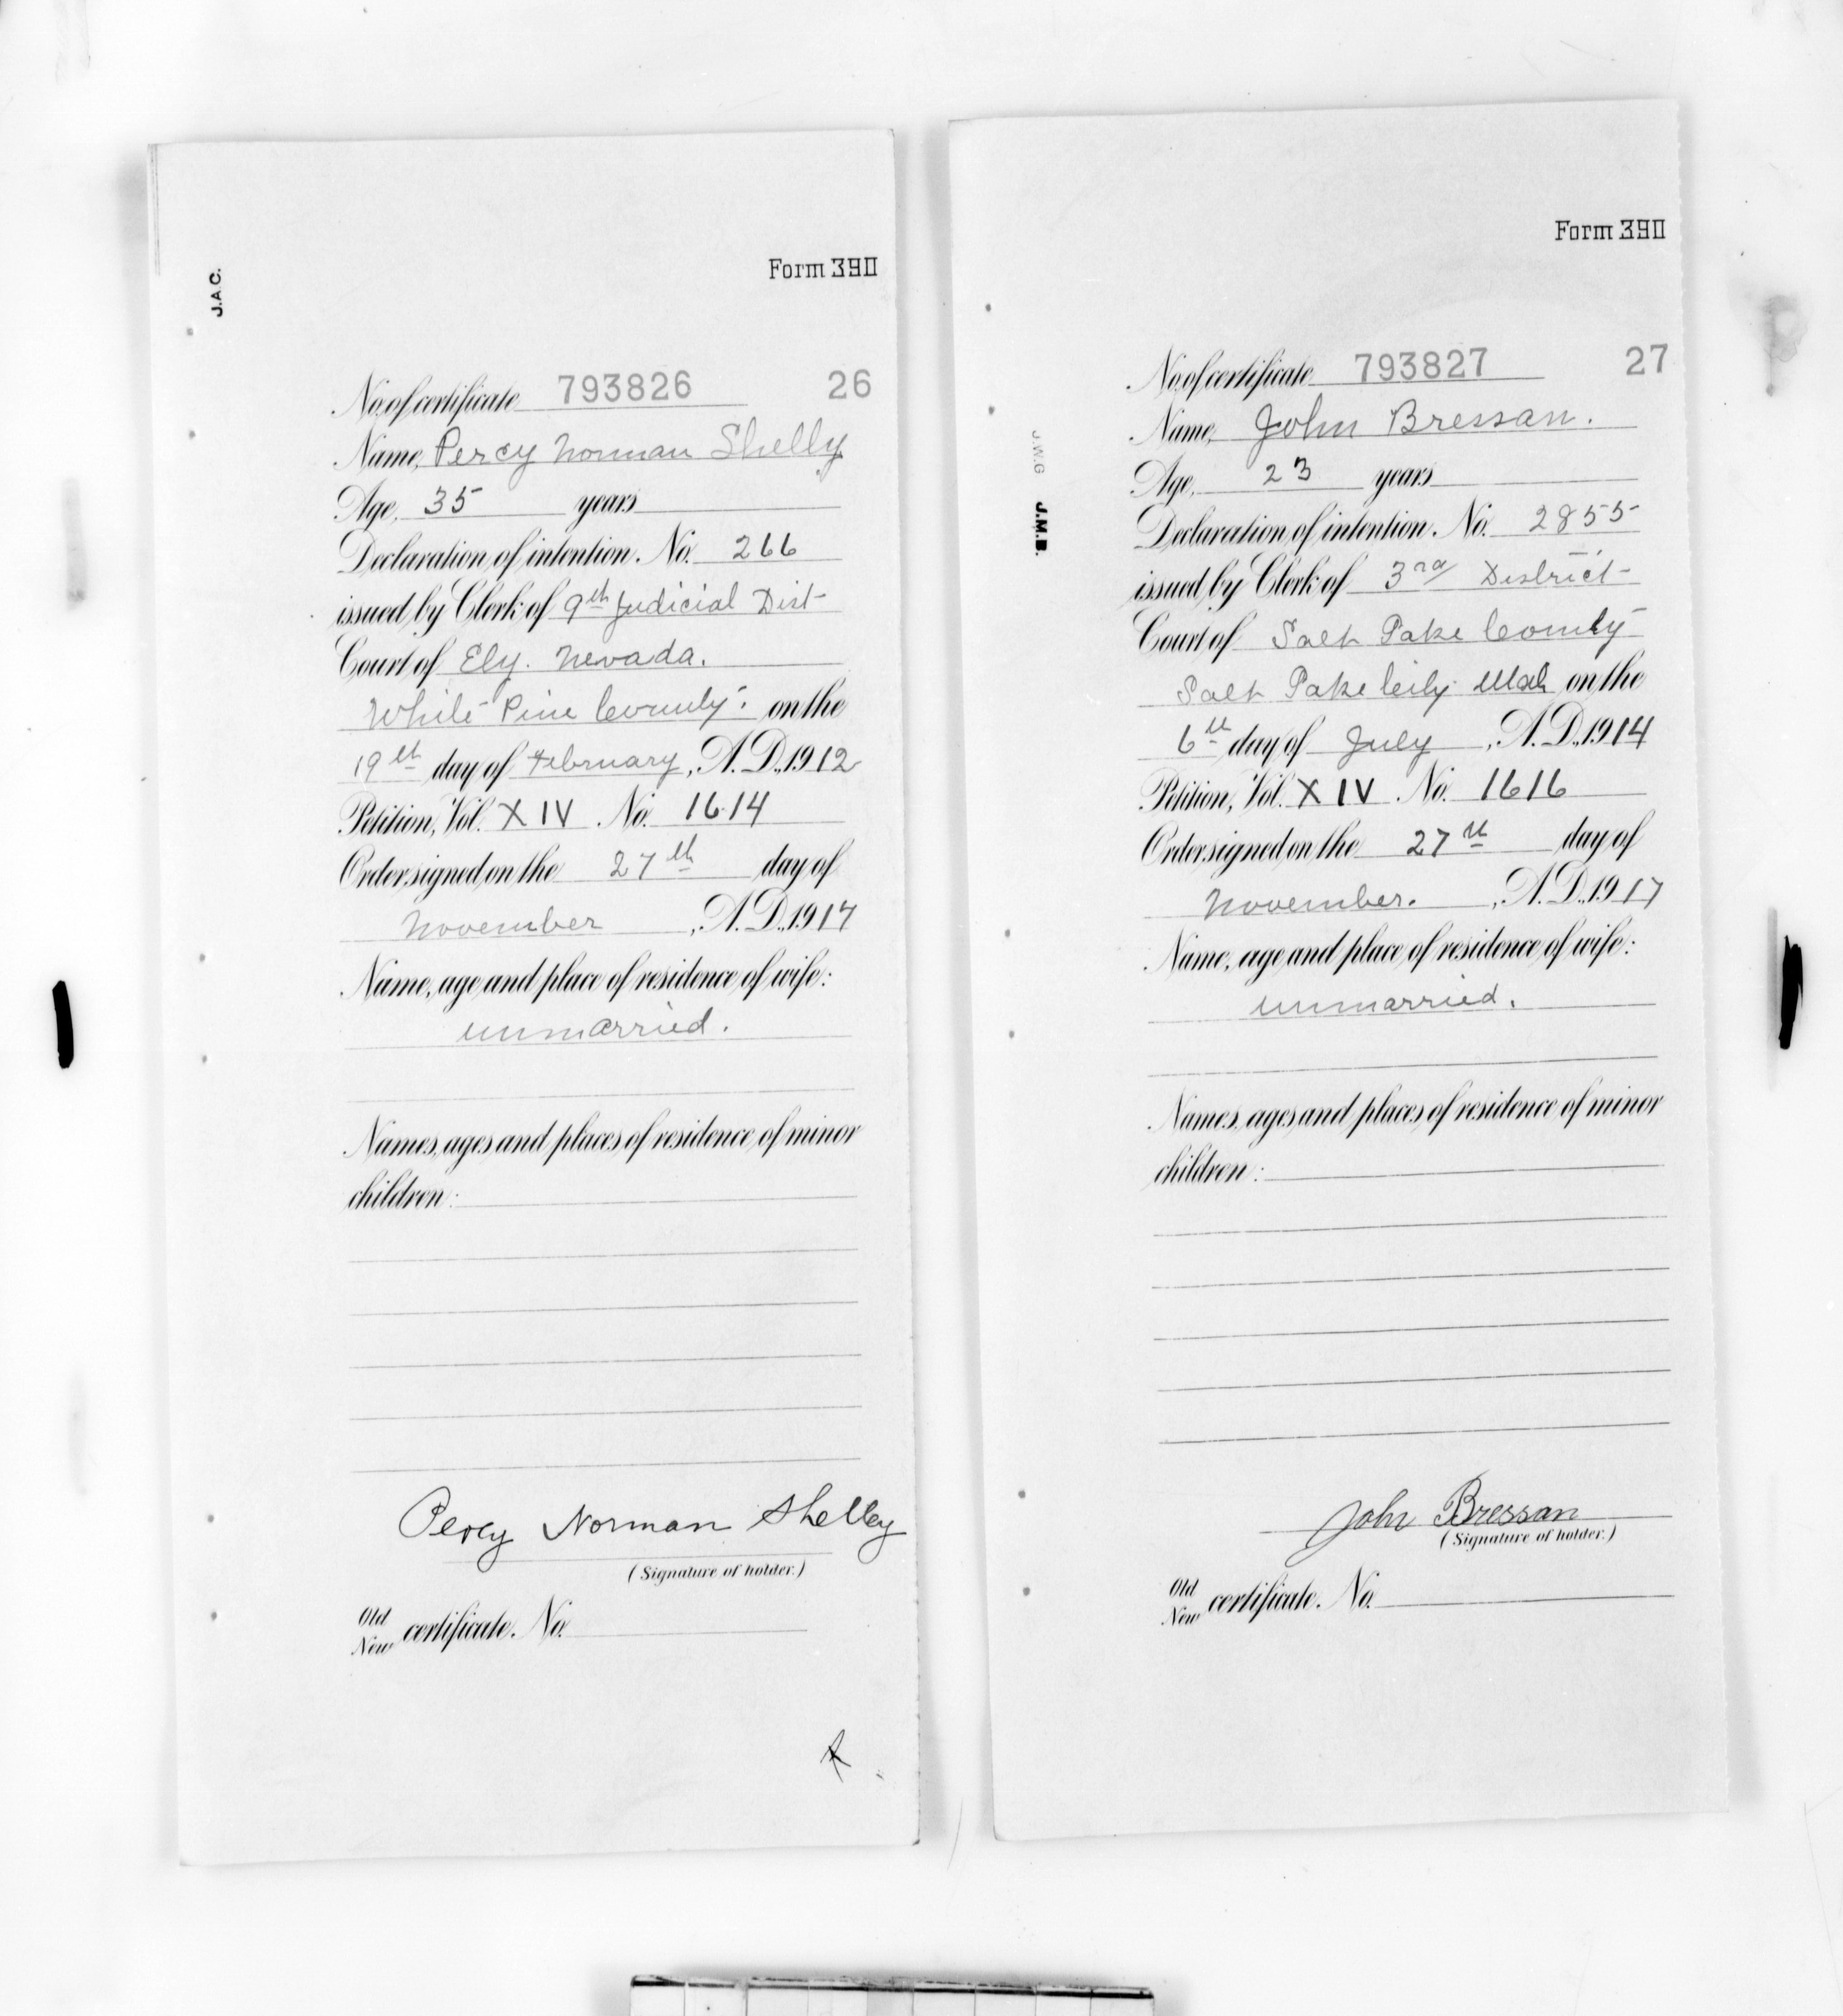 J.A.C.
Form 390
No. of certificate 793826 26
Name, Percy Norman Shelly
Age, 35 years
Declaration of intention. No. 266
issued by Clerk of 9th Judicial Dist
Court of Ely. Nevada.
White Pine County. on the
19th day of February, A.D. 1912
Petition, Vol. XIV No. 1614
Order signed on the 27th day of
November, A.D. 1917
Name, age and place of residence of wife:
unmarried.
Names, ages and places of residence of minor
children:
Percy Norman Shelley
(Signature of holder.)
Old
New certificate. No.
Form 390
No. of certificate 793827 27
Name, John Bressan.
J.W.G J.M.B.
Age, 23 years
Declaration of intention. No. 2855
issued by Clerk of 3rd District
Court of Salt Lake County
Salt Lake City Utah on the
6th day of July, A.D. 1914
Petition, Vol. XIV No. 1616
Order signed on the 27th day of
November., A.D. 1917
Name, age and place of residence of wife:
unmarried.
Names, ages and places of residence of minor
children:
John Bressan
(Signature of holder.)
Old
New certificate. No.